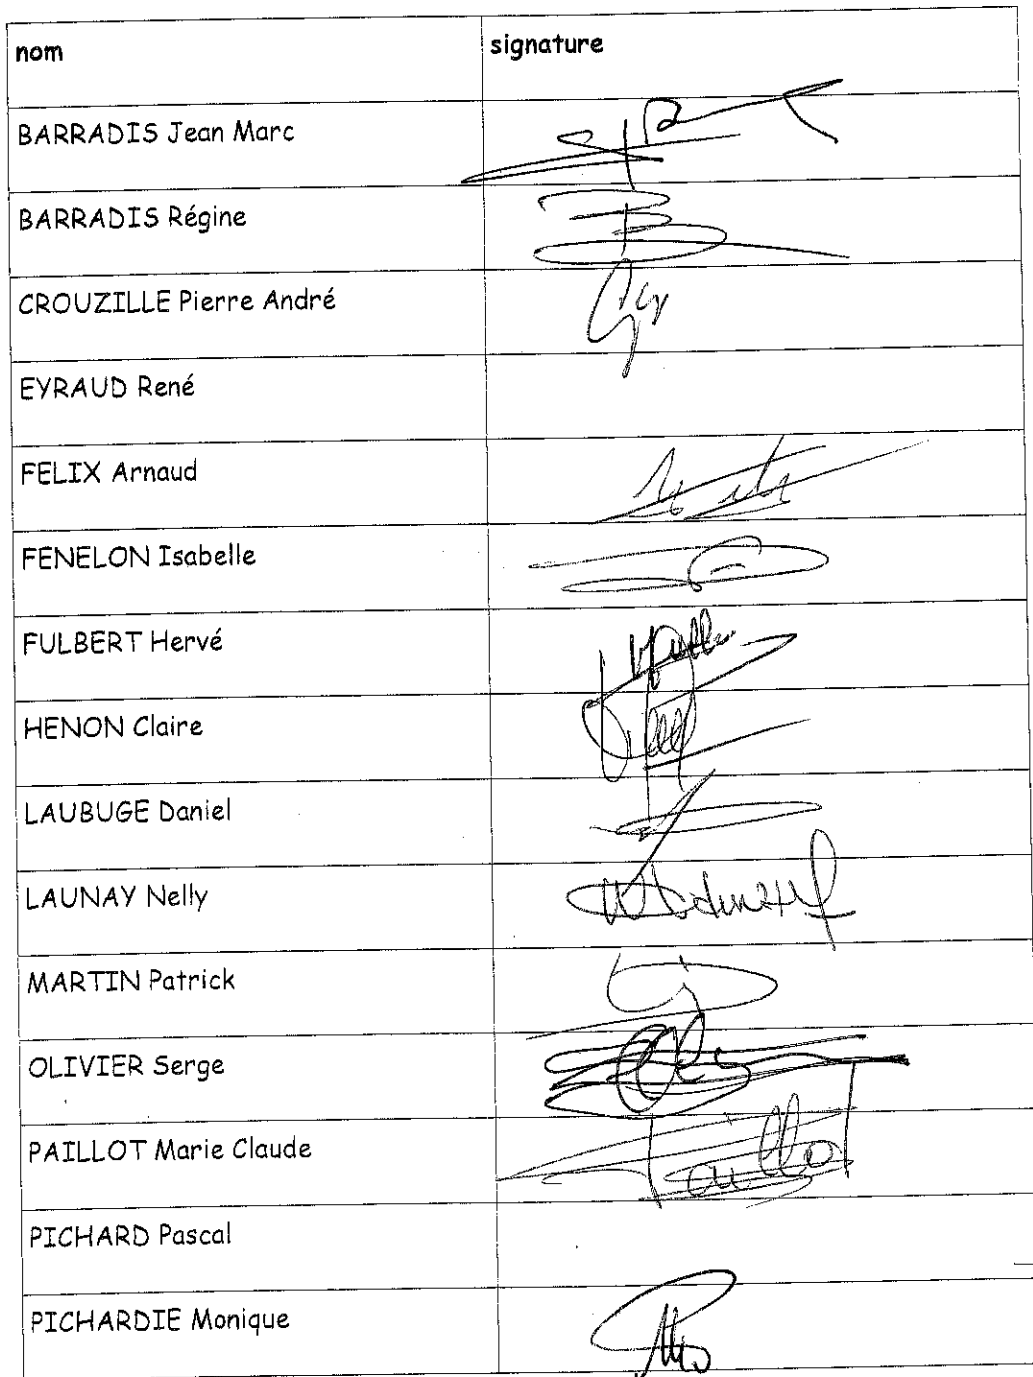 nom signature
BARRADIS Jean Marc
BARRADIS Régine
CROUZILLE Pierre André
EYRAUD René
FELIX Arnaud
FENELON Isabelle
FULBERT Hervé
HENON Claire
LAUBUGE Daniel
LAUNAY Nelly
MARTIN Patrick
OLIVIER Serge
PAILLOT Marie Claude Paillot
PICHARD Pascal
PICHARDIE Monique